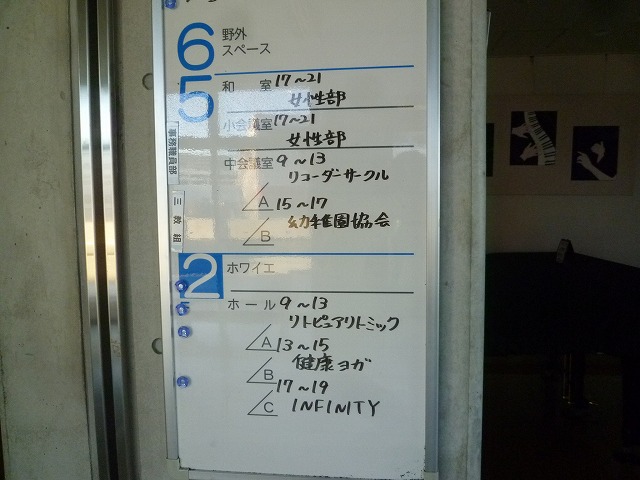 6 野外
スペース
5 和室 17〜21
女性部
小会議室 17〜21
女性部
事務職員部
中会議室 9〜13
リコーダーサークル
三教組
A 15〜17
幼稚園協会
B
2 ホワイエ
ホール 9〜13
リトピュアリトミック
A 13〜15
健康ヨガ
B 17〜19
C INFINITY